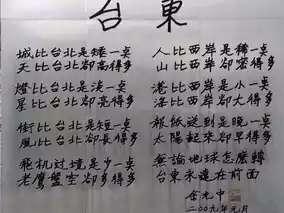 台東
城比台北是矮一奌
天比台北卻高得多
燈比台北是淡一奌
星比台北卻亮得多
街比台北是短一奌
風比台北卻長得多
飛机过境是少一奌
老鷹盤空卻多得多
人比西岸是稀一奌
山比西岸卻密得多
港比西岸是小一奌
海比西岸卻大得多
報紙送到是晚一奌
太陽起來卻早得多
無論地球怎麼轉
台東永遠在前面
余光中
二〇〇九年元月